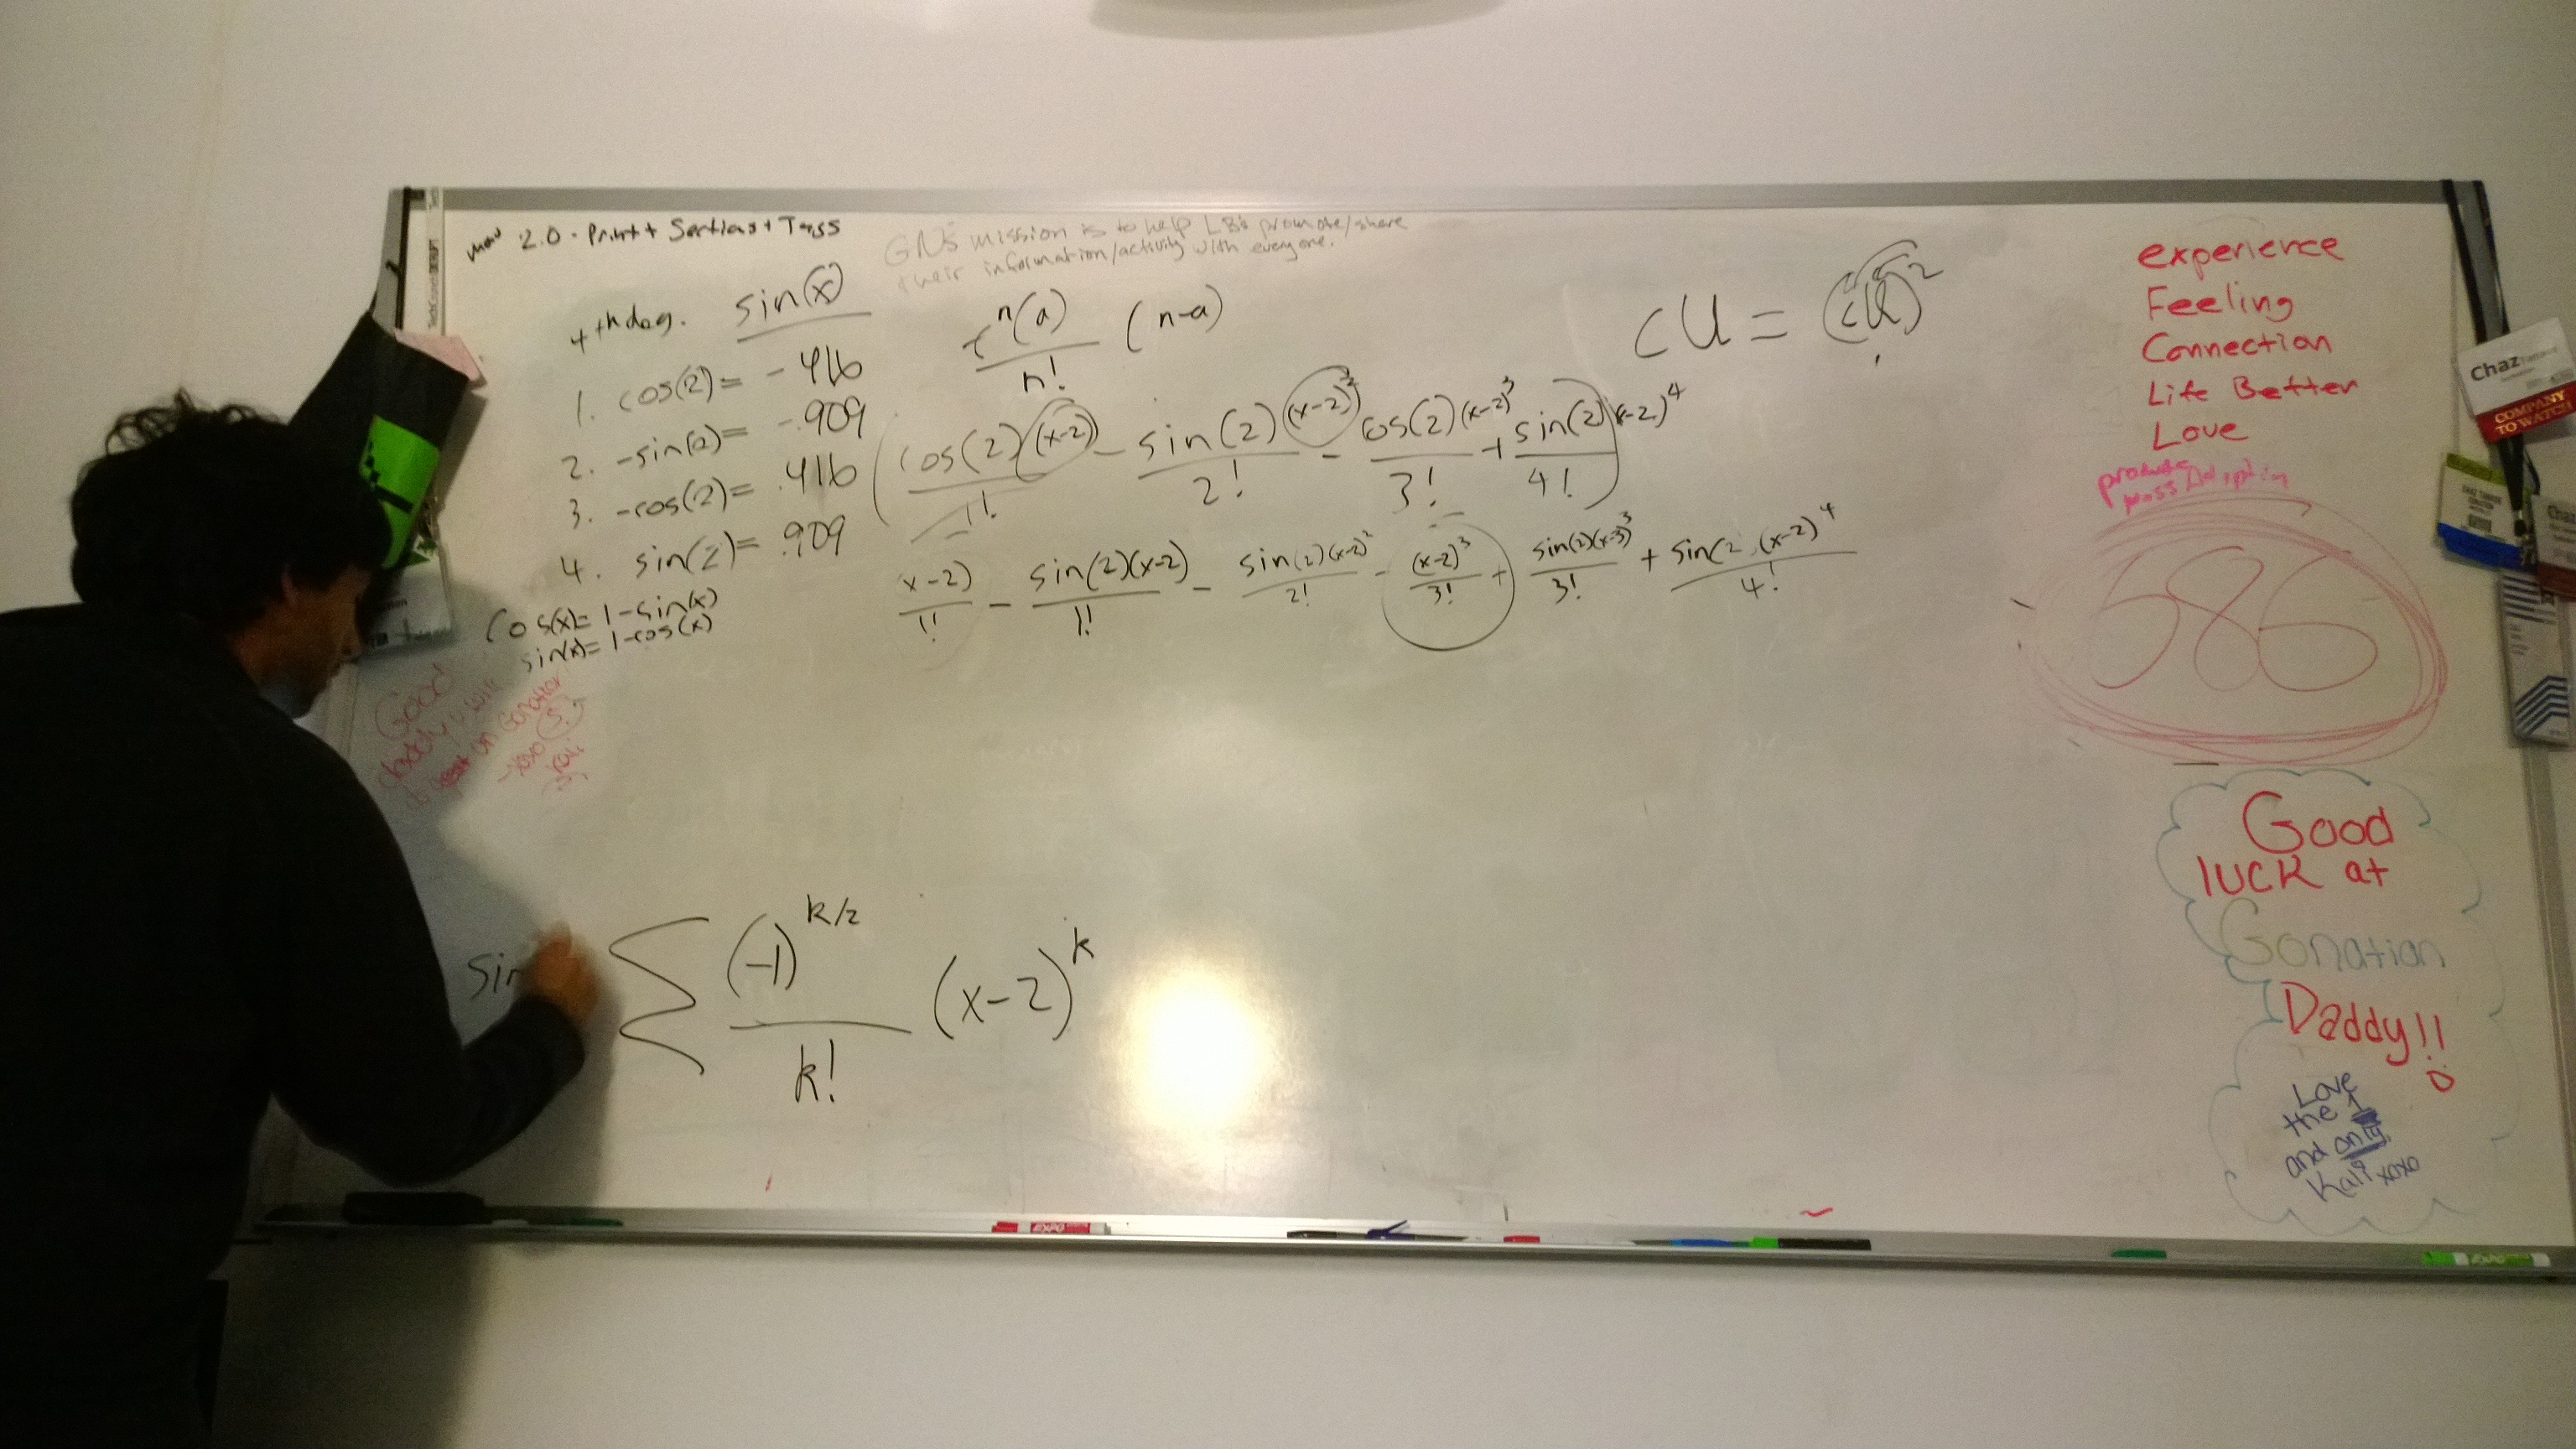 2.0 - Print + Sections + Tags
GN's mission is to help LB's promote/share
their information/activity with everyone.
4th deg. sin(x)
1. cos(2) = -.416
2. -sin(2) = -.909
3. -cos(2) = .416
4. sin(2) = .909
cos(x) = 1-sin(x)
sin(x) = 1-cos(x)
f^n(a)/n! (n-a)
(cos(2)(x-2)/1! - sin(2)(x-2)^2/2! - cos(2)(x-2)^3/3! + sin(2)/4!)(x-2)^4
x-2)/1! - sin(2)(x-2)/1! - sin(2)(x-2)^2/2! - (x-2)^3/3! + sin(2)(x-3)^3/3! + sin(2 (x-2)^4/4!
cU = (cU)^2
Good
daddy u will
on Gonation
xoxo
Kali
sin
Σ (-1)^k/2 / k! (x-2)^k
experience
Feeling
Connection
Life Better
Love
Mass Adoption
586
Good
luck at
Gonation
Daddy!!
Love
the 1
and only
Kali xoxo
Chaz
COMPANY
TO WATCH
Chaz
EXPO
EXPO